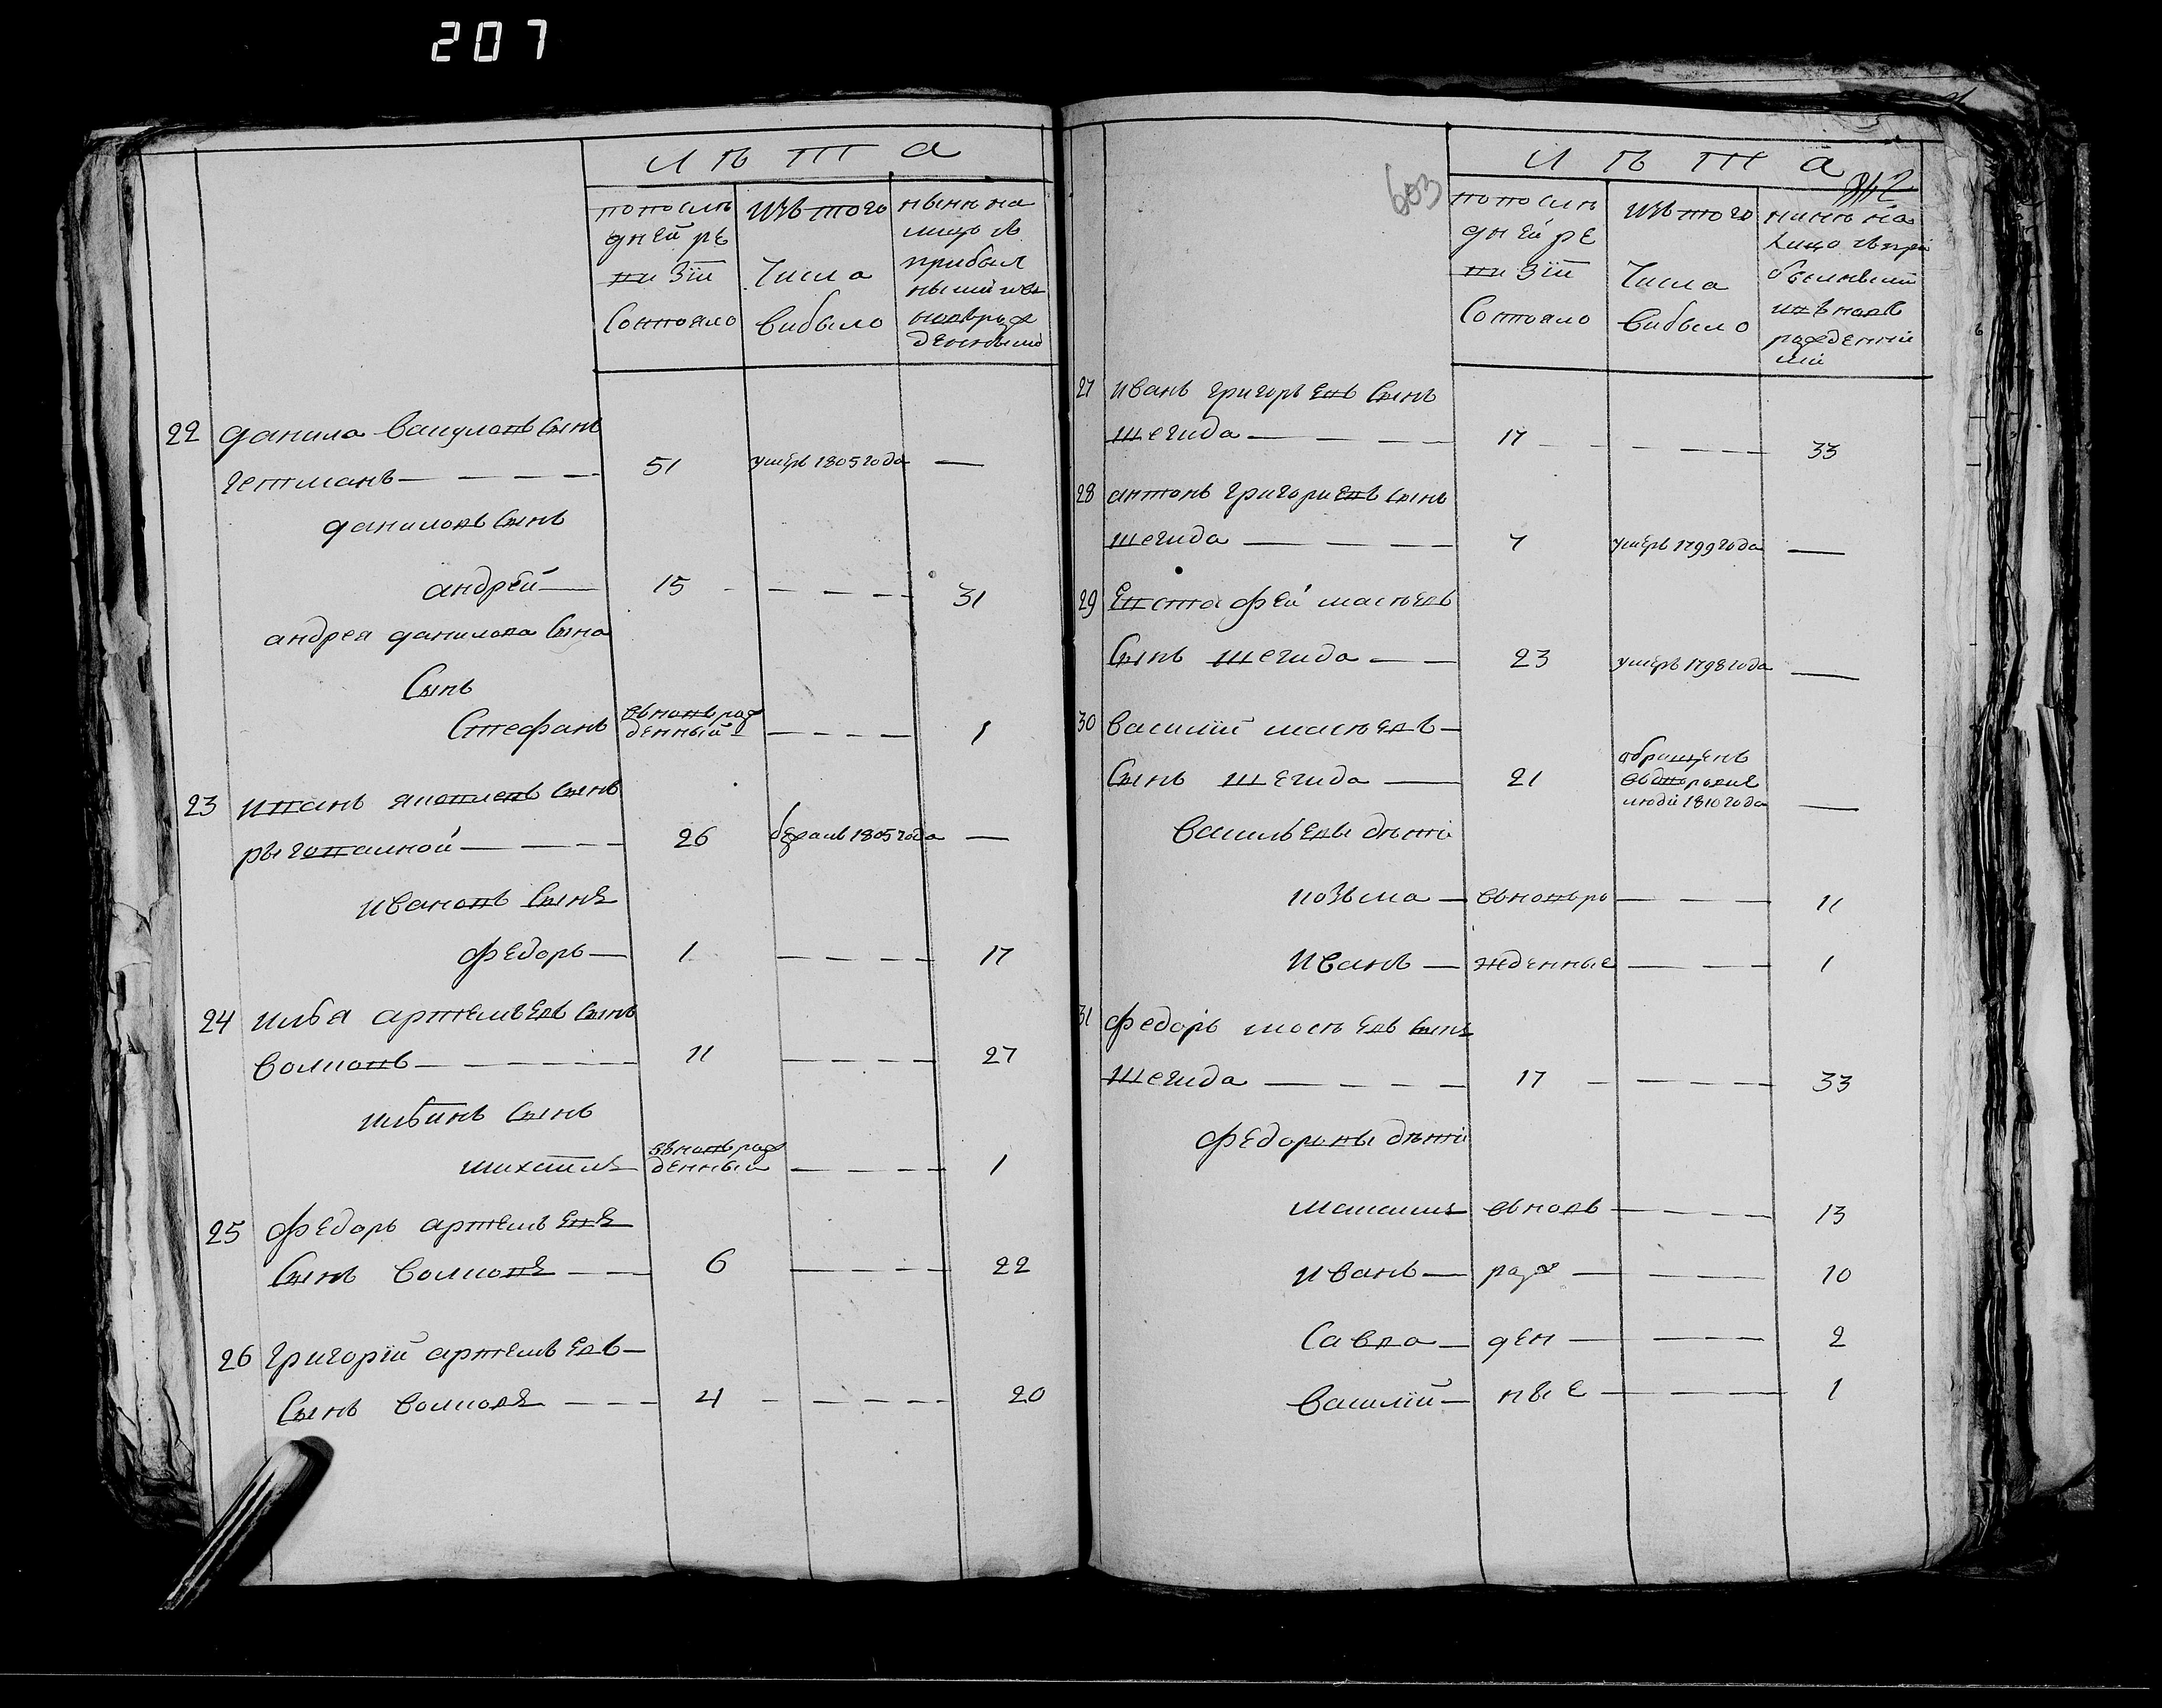 207
лѣта
по послѣ
дней ре
визіи
состояло
изъ того
числа
выбыло
нынѣ на
лицо съ
прибыл
ными и въ
новь рож
денными
22 данила вакуловъ сынъ
гетманъ — 51 умеръ 1805 года —
даниловъ сынъ
андрей — 15 — 31
андрея данилова сына
сынъ
стефанъ въновь рож
денный — 1
23 иванъ яковлевъ сынъ
26 бежалъ 1805 года —
ивановъ сынъ
федоръ — 1 — 17
24 илья артемьевъ сынъ
волковъ — 11 — 27
ильинъ сынъ
михаилъ въновь рож
денный — 1
25 федоръ артемьевъ
сынъ волковъ — 6 — 22
26 григорій артемьевъ —
сынъ волковъ — 4 — 20
603
лѣта
по послѣ
дней ре
визіи
состояло
изъ того
числа
выбыло
нынѣ на
лицо съ при
былыми
и въ новь
рожденні
ми
27 иванъ григорьевъ сынъ
шегида — 17 — 33
28 антонъ григориевъ сынъ
шегида — 7 умеръ 1799 года —
29 евстафей мосѣевъ
сынъ шегида — 23 умеръ 1798 года —
30 василій мосѣевъ —
сынъ шегида — 21 обращенъ
въ дворовые
люди 1810 года —
васильевы дѣти
козьма — въновь ро — 11
иванъ — жденные — 1
31 федоръ мосѣевъ сынъ
шегида — 17 — 33
федоровы дѣти
въновь — 13
иванъ — рож — 10
савва — ден — 2
василій — ные — 1